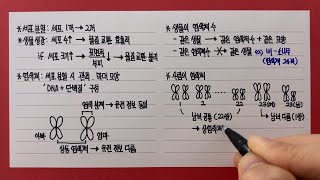 * 세포 분열 : 세포 1개 → 2개
* 생물 성장 : 세포 수↑ → 물질 교환 효율적
if 세포 크기↑ → 표면적/부피 ↓ → 물질 교환 불리
* 염색체 : 세포 분열 시 관찰, 막대 모양
"DNA + 단백질" 구성
염색 분체 → 유전 정보 동일
아빠
엄마
상동 염색체 → 유전 정보 다름
* 생물의 염색체 수
- 같은 생물 → 같은 염색체 수 + 같은 모양
- 같은 염색체 수 → 같은 생물
* 사람의 염색체
1 2 22 23(여) 23(남)
남녀 공통 (22쌍)
남녀 다름 (1쌍)
→ 상염색체